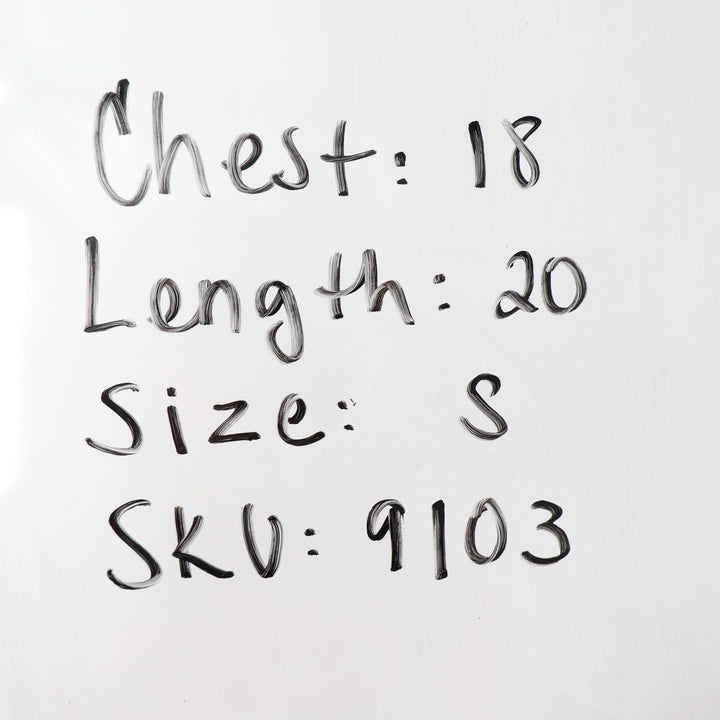 Chest: 18
Length: 20
Size: S
SKU: 9103